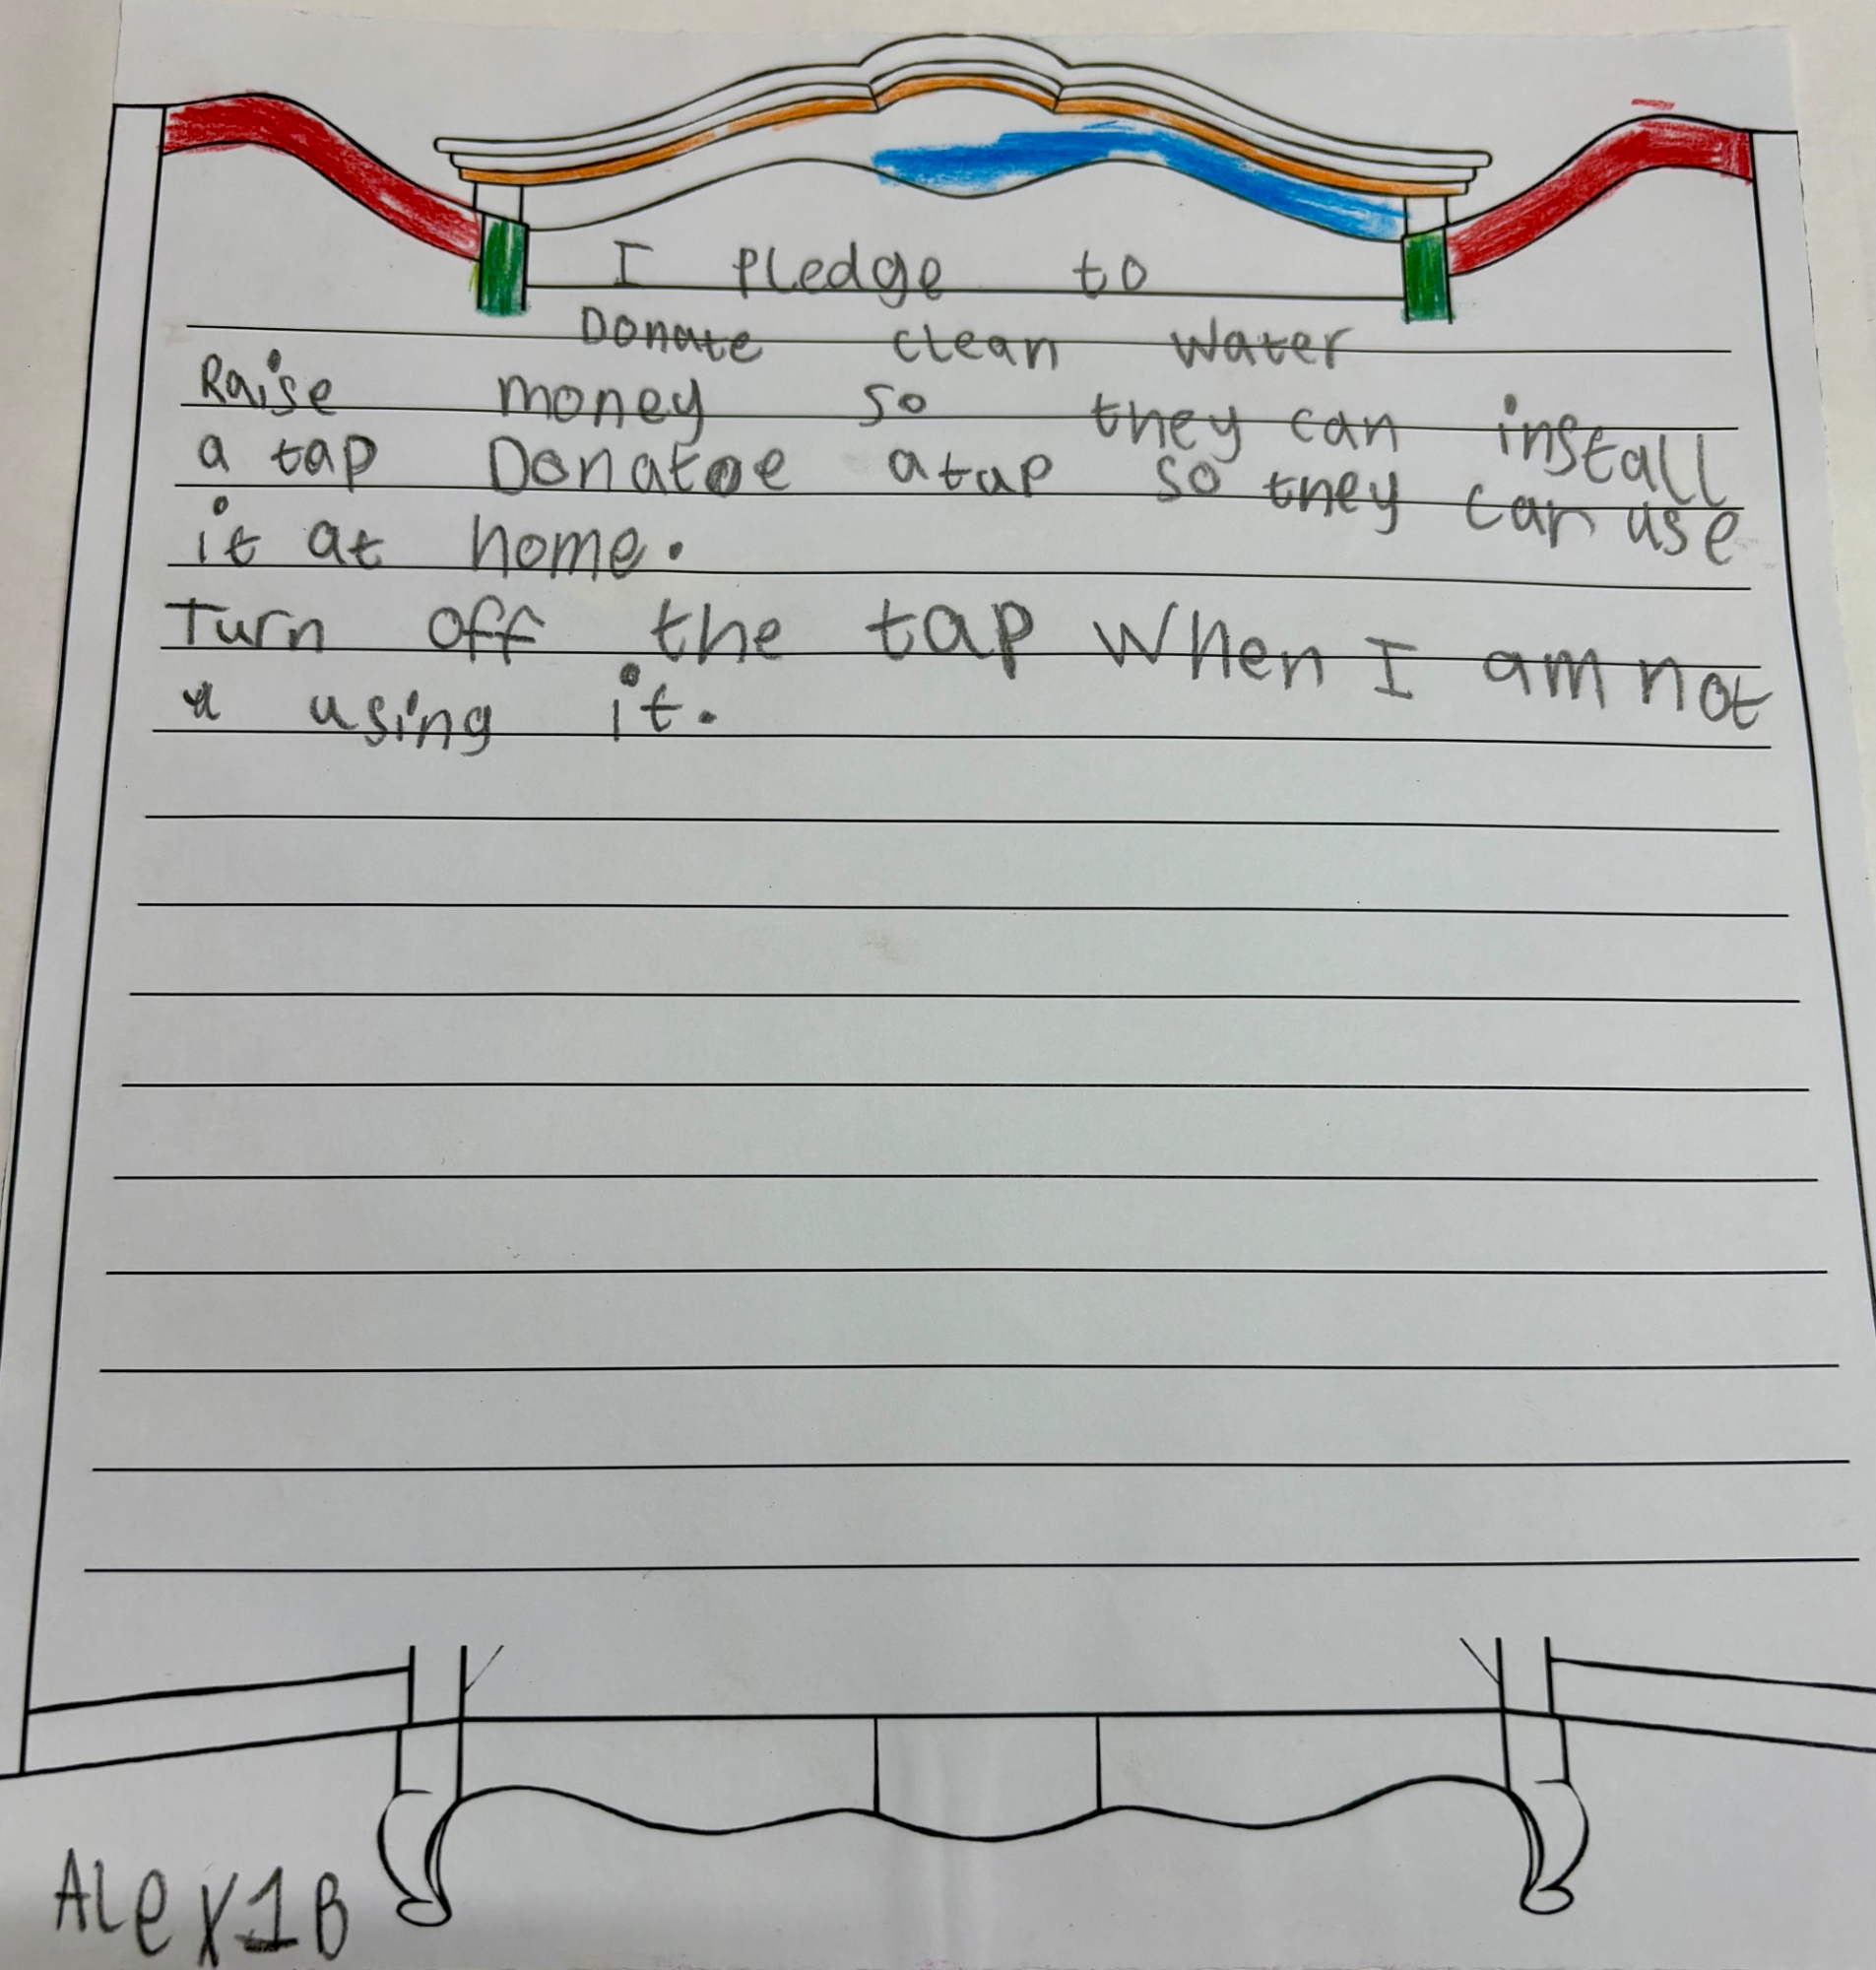 I pledge to
Donate clean water
Raise money so they can install
a tap Donatoe a tap so they can use
it at home.
Turn off the tap when I am not
u using it.
Alex 1B